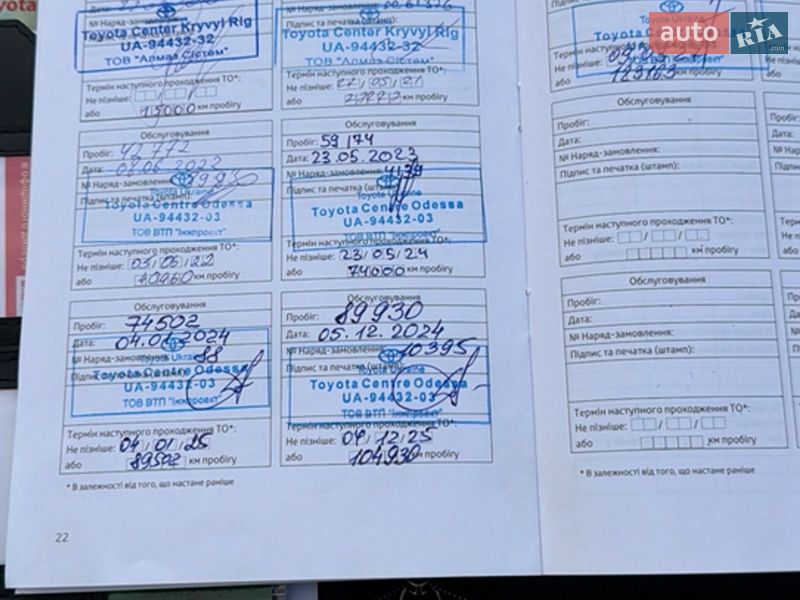 auto RIA
Toyota Center Kryvyi Rig
UA-94432-32
ТОВ "Алмаз Сістем"
Термін наступного проходження ТО*:
Не пізніше:
або 15000 км пробігу
Підпис та печатка (штамп):
Toyota Center Kryvyi Rig
UA-94432-32
ТОВ "Алмаз Сістем"
Термін наступного проходження ТО*:
Не пізніше:
або км пробігу
Обслуговування
Пробіг: 42 772
Дата:
№ Наряд-замовлення:
Підпис та печатка (штамп):
Toyota Ukraine
Toyota Centre Odessa
UA-94432-03
ТОВ ВТП "Інжпроект"
Термін наступного проходження ТО*:
Не пізніше:
або км пробігу
Обслуговування
Пробіг: 59 174
Дата: 23.05.2023
№ Наряд-замовлення: 4139
Підпис та печатка (штамп):
Toyota Ukraine
Toyota Centre Odessa
UA-94432-03
ТОВ ВТП "Інжпроект"
Термін наступного проходження ТО*:
Не пізніше: 23/05/24
або 74000 км пробігу
Обслуговування
Пробіг: 74502
Дата: 04.01.2024
№ Наряд-замовлення: 88
Toyota Ukraine
Toyota Centre Odessa
UA-94432-03
ТОВ ВТП "Інжпроект"
Термін наступного проходження ТО*:
Не пізніше: 04/01/25
або 89502 км пробігу
Обслуговування
Пробіг: 89930
Дата: 05.12.2024
№ Наряд-замовлення: 10395
Підпис та печатка (штамп):
Toyota Ukraine
Toyota Centre Odessa
UA-94432-03
ТОВ ВТП "Інжпроект"
Термін наступного проходження ТО*:
Не пізніше: 04/12/25
або 104930 км пробігу
* В залежності від того, що настане раніше
22
Термін наступного
Не пізніше:
або 123163 км пробігу
Обслуговування
Пробіг:
Дата:
№ Наряд-замовлення:
Підпис та печатка (штамп):
Термін наступного проходження ТО*:
Не пізніше: / /
або км пробігу
Обслуговування
Пробіг:
Дата:
№ Наряд-замовлення:
Підпис та печатка (штамп):
Термін наступного проходження ТО*:
Не пізніше: / /
або км пробігу
* В залежності від того, що настане раніше